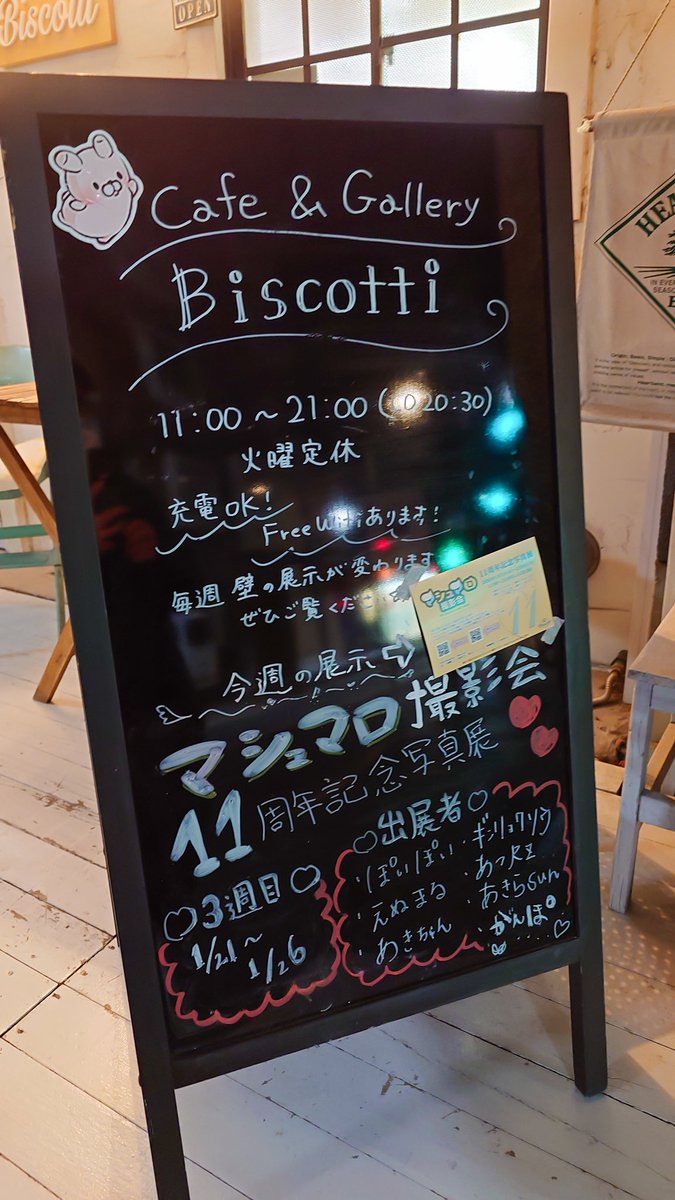 Biscotti
OPEN
Cafe & Gallery
Biscotti
11:00～21:00(LO20:30)
火曜定休
充電OK!
Free Wifiあります!
毎週 壁の展示が変わります
ぜひご覧ください
今週の展示
マシュマロ撮影会
11周年記念写真展
3週目
1/21～
1/26
出展者
・ぽいぽい
・えぬまる
・あきちゃん
・ギンリョウソウ
・あつKZ
・あきらSun
・がんぽ
11周年記念写真展
マシュマロ
撮影会
11
HEA
IN EVER
SEASO